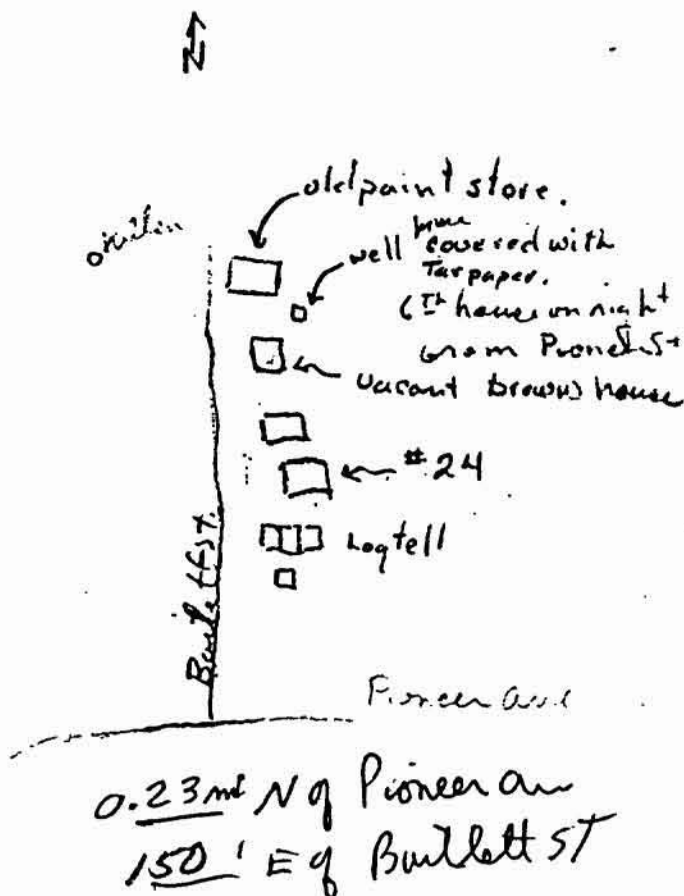 N
old paint store.
well house covered with
Tar paper.
6th house on right
from Pioneer St
vacant brown house
#24
Bartlett St.
Pioneer Ave
0.23 mi N of Pioneer Av
150' E of Bartlett ST